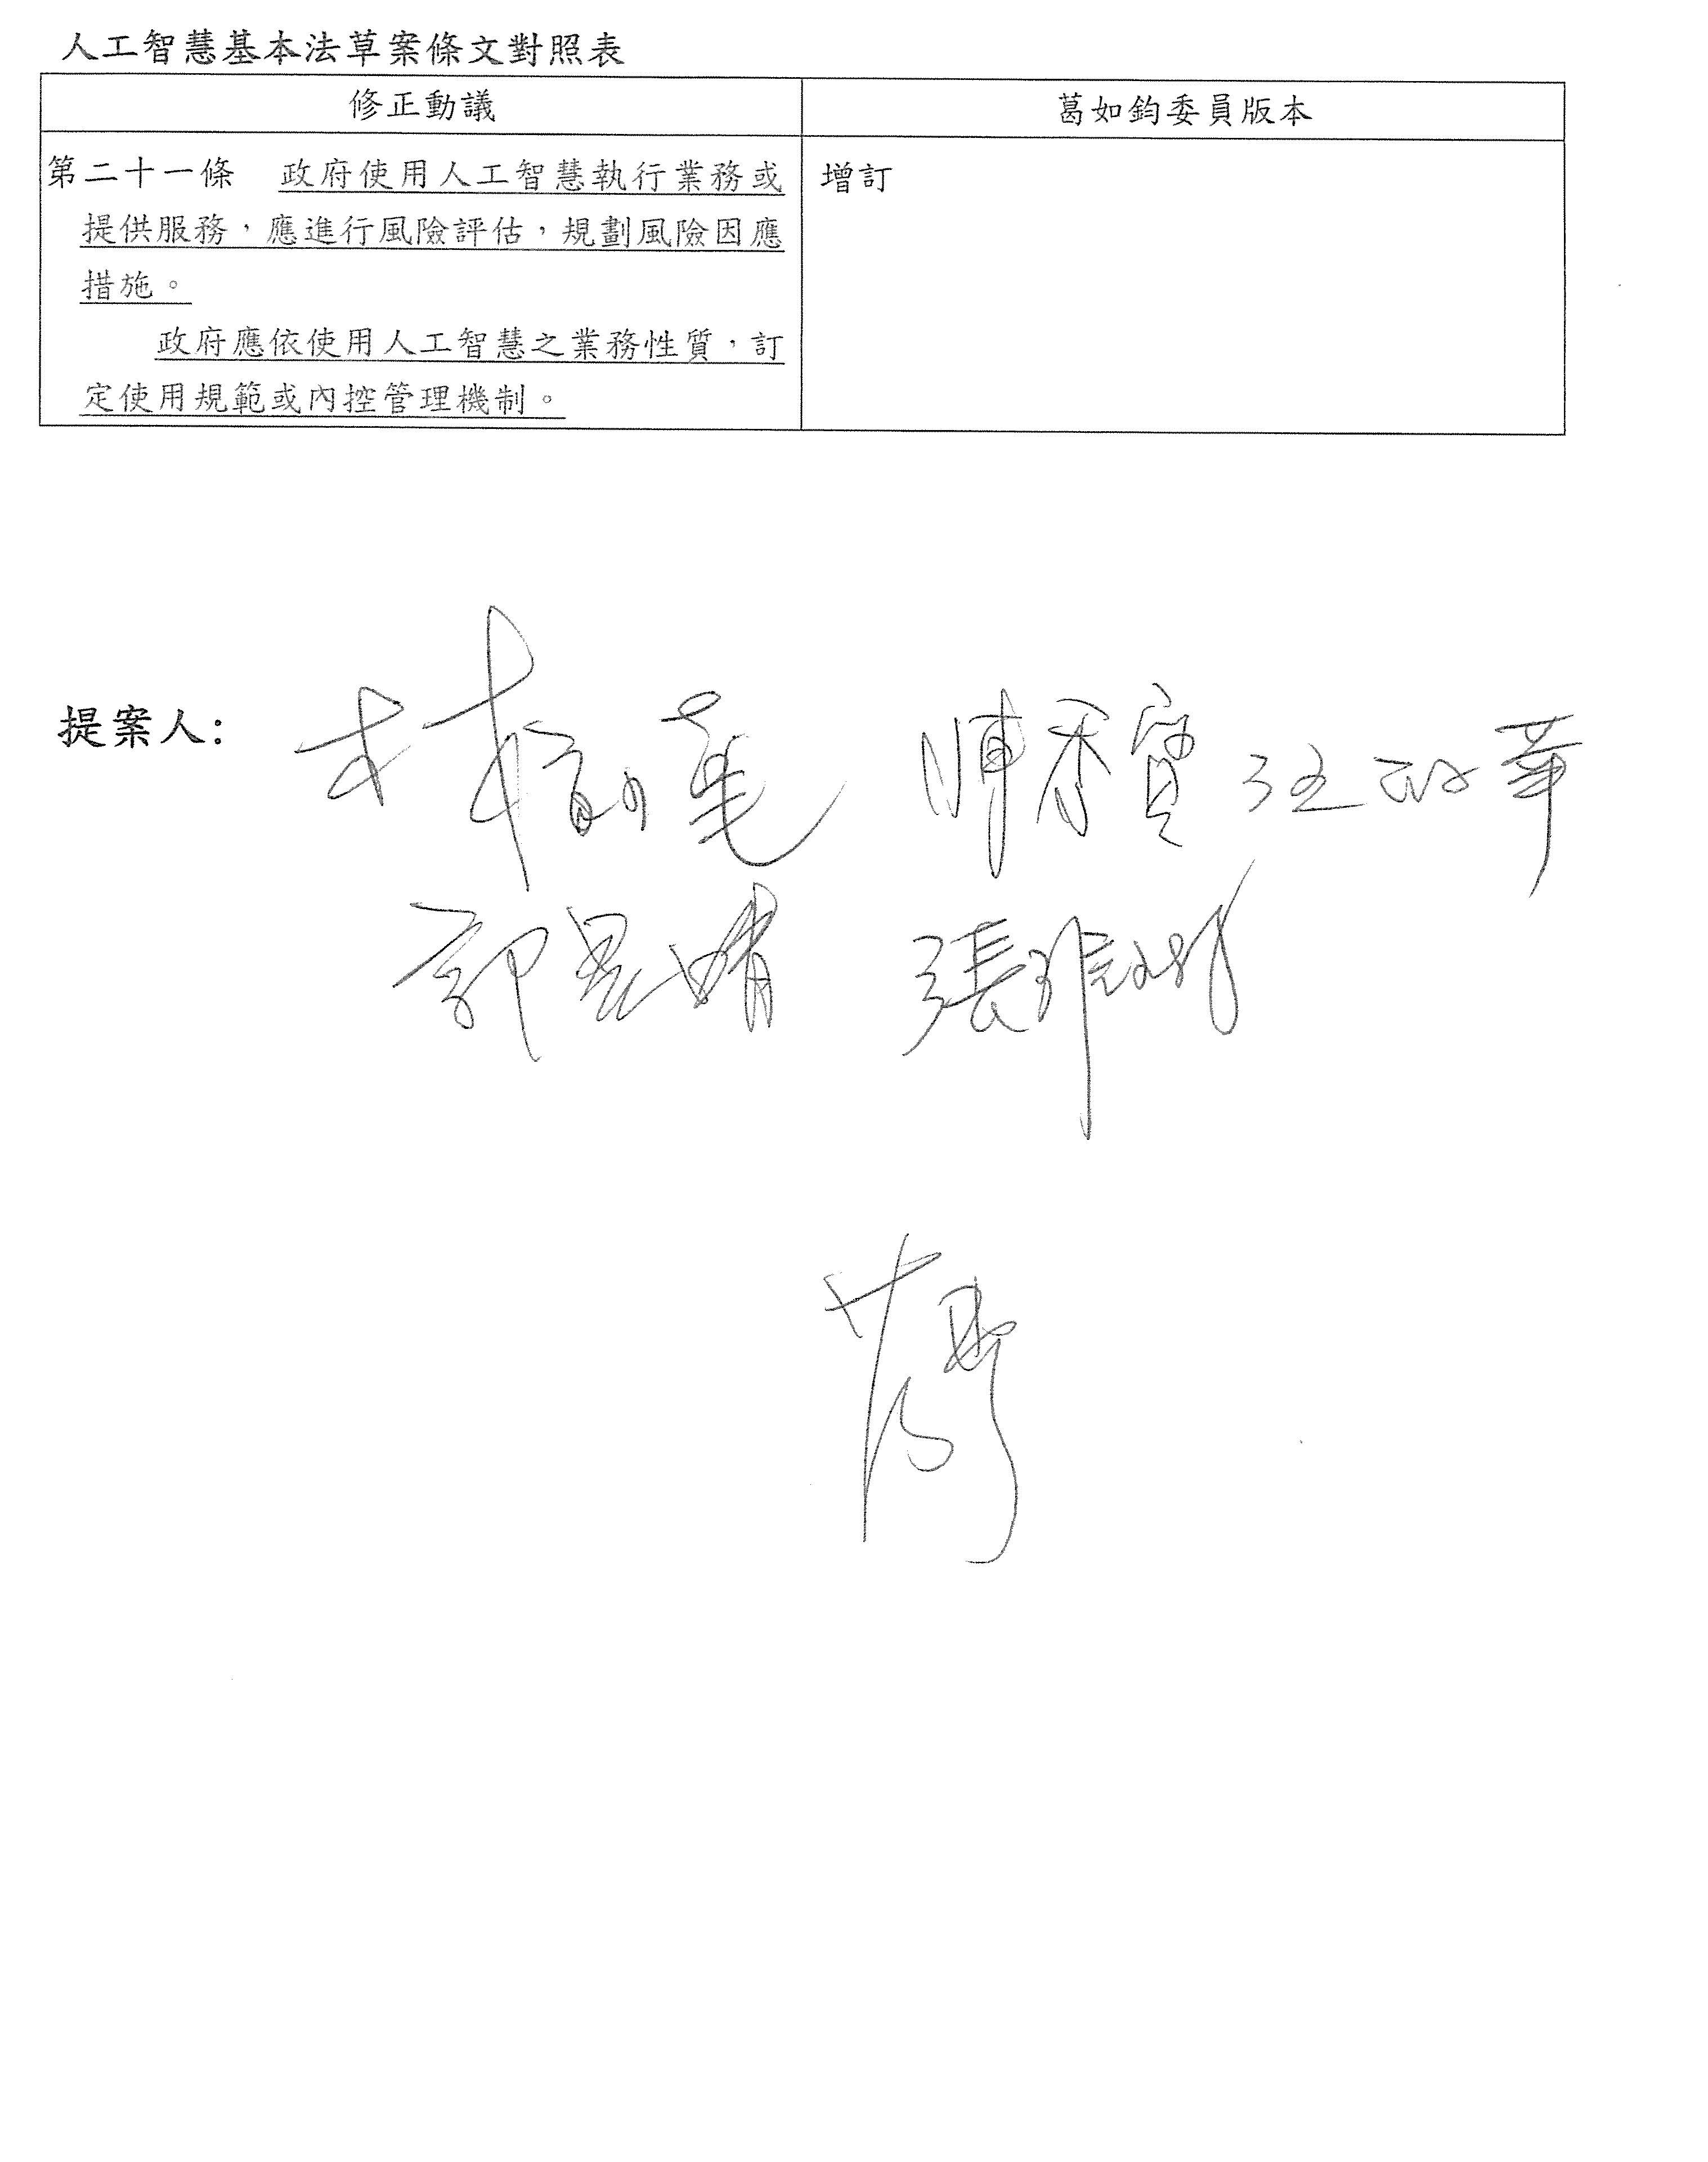 人工智慧基本法草案條文對照表
修正動議
葛如鈞委員版本
第二十一條 政府使用人工智慧執行業務或
提供服務，應進行風險評估，規劃風險因應
措施。
政府應依使用人工智慧之業務性質，訂
定使用規範或內控管理機制。
增訂
提案人：
陳秀寳
郭昱晴